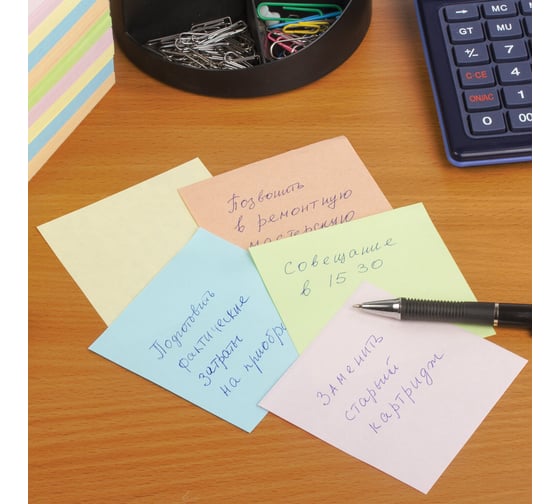 Позвонить
в ремонтную
мастерскую
Совещание
в 15 30
Подготовить
фактические
затраты
на приобре
Заменить
старый
картридж
→ MC
GT MU
+/- 7
C·CE 4
ON/AC 1
0 00